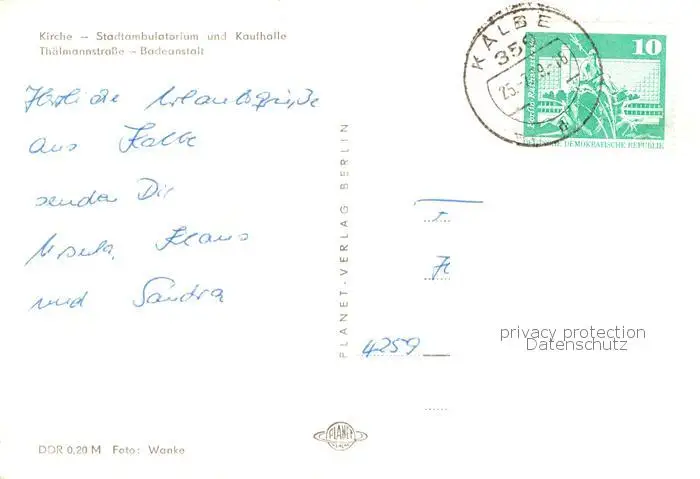 Kirche – Stadtambulatorium und Kaufhalle
Thälmannstraße – Badeanstalt
Herzliche Urlaubsgrüße
aus Kalbe
senden Dir
Ursula, Klaus
und Sandra
PLANET-VERLAG BERLIN
KALBE
359
25.
10
DEMOKRATISCHE REPUBLIK
4259
privacy protection
Datenschutz
PLANET
DDR 0,20 M Foto: Wanke